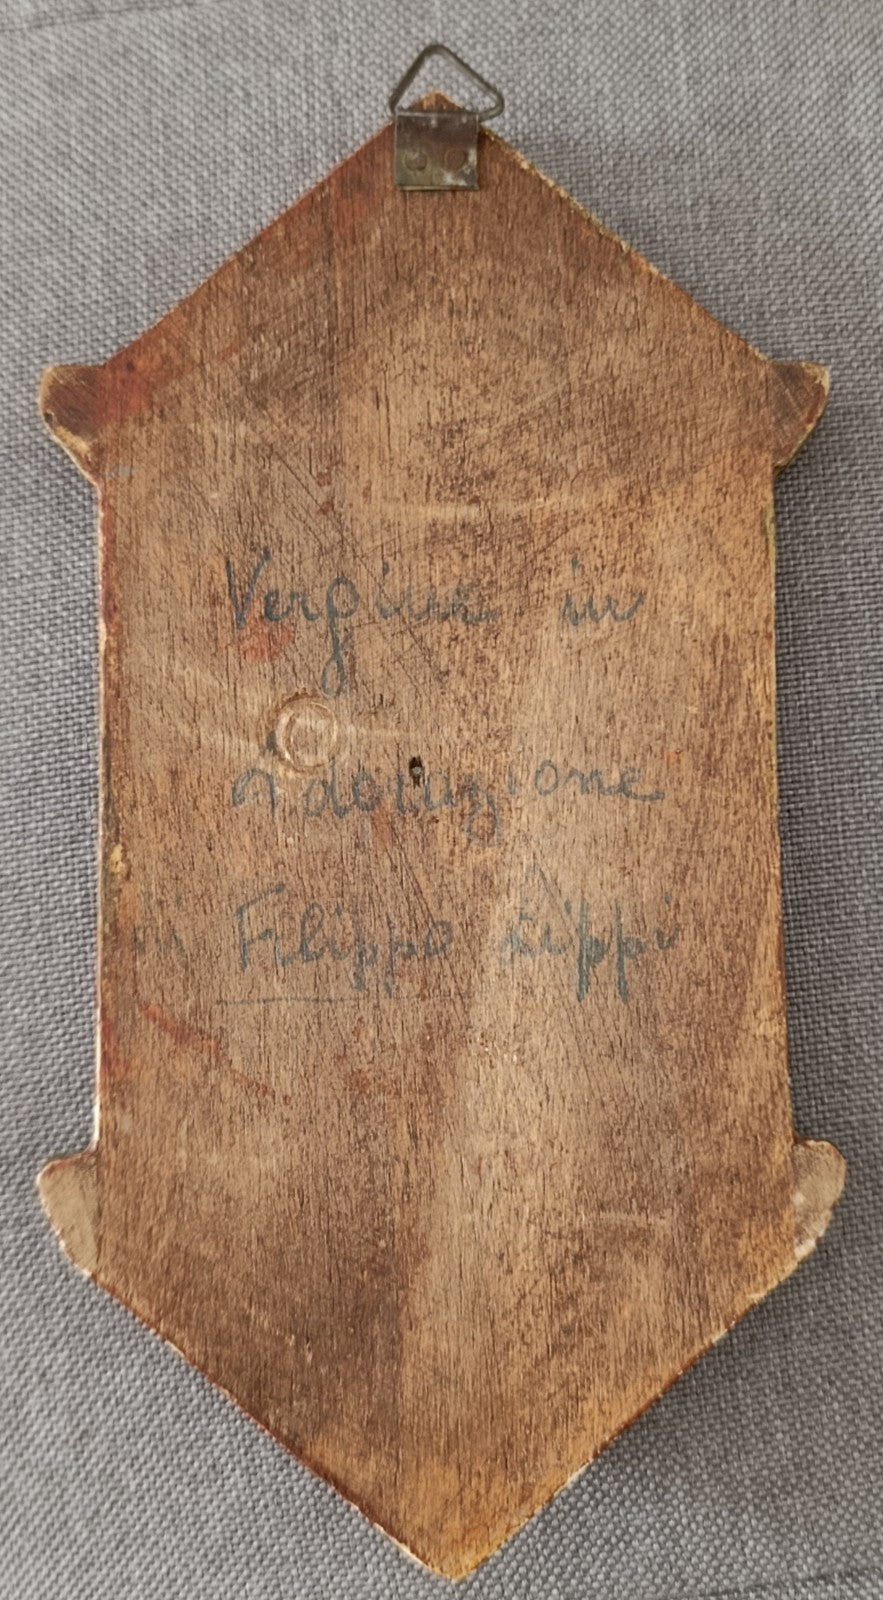 Vergine in
Adorazione
di Filippo Lippi